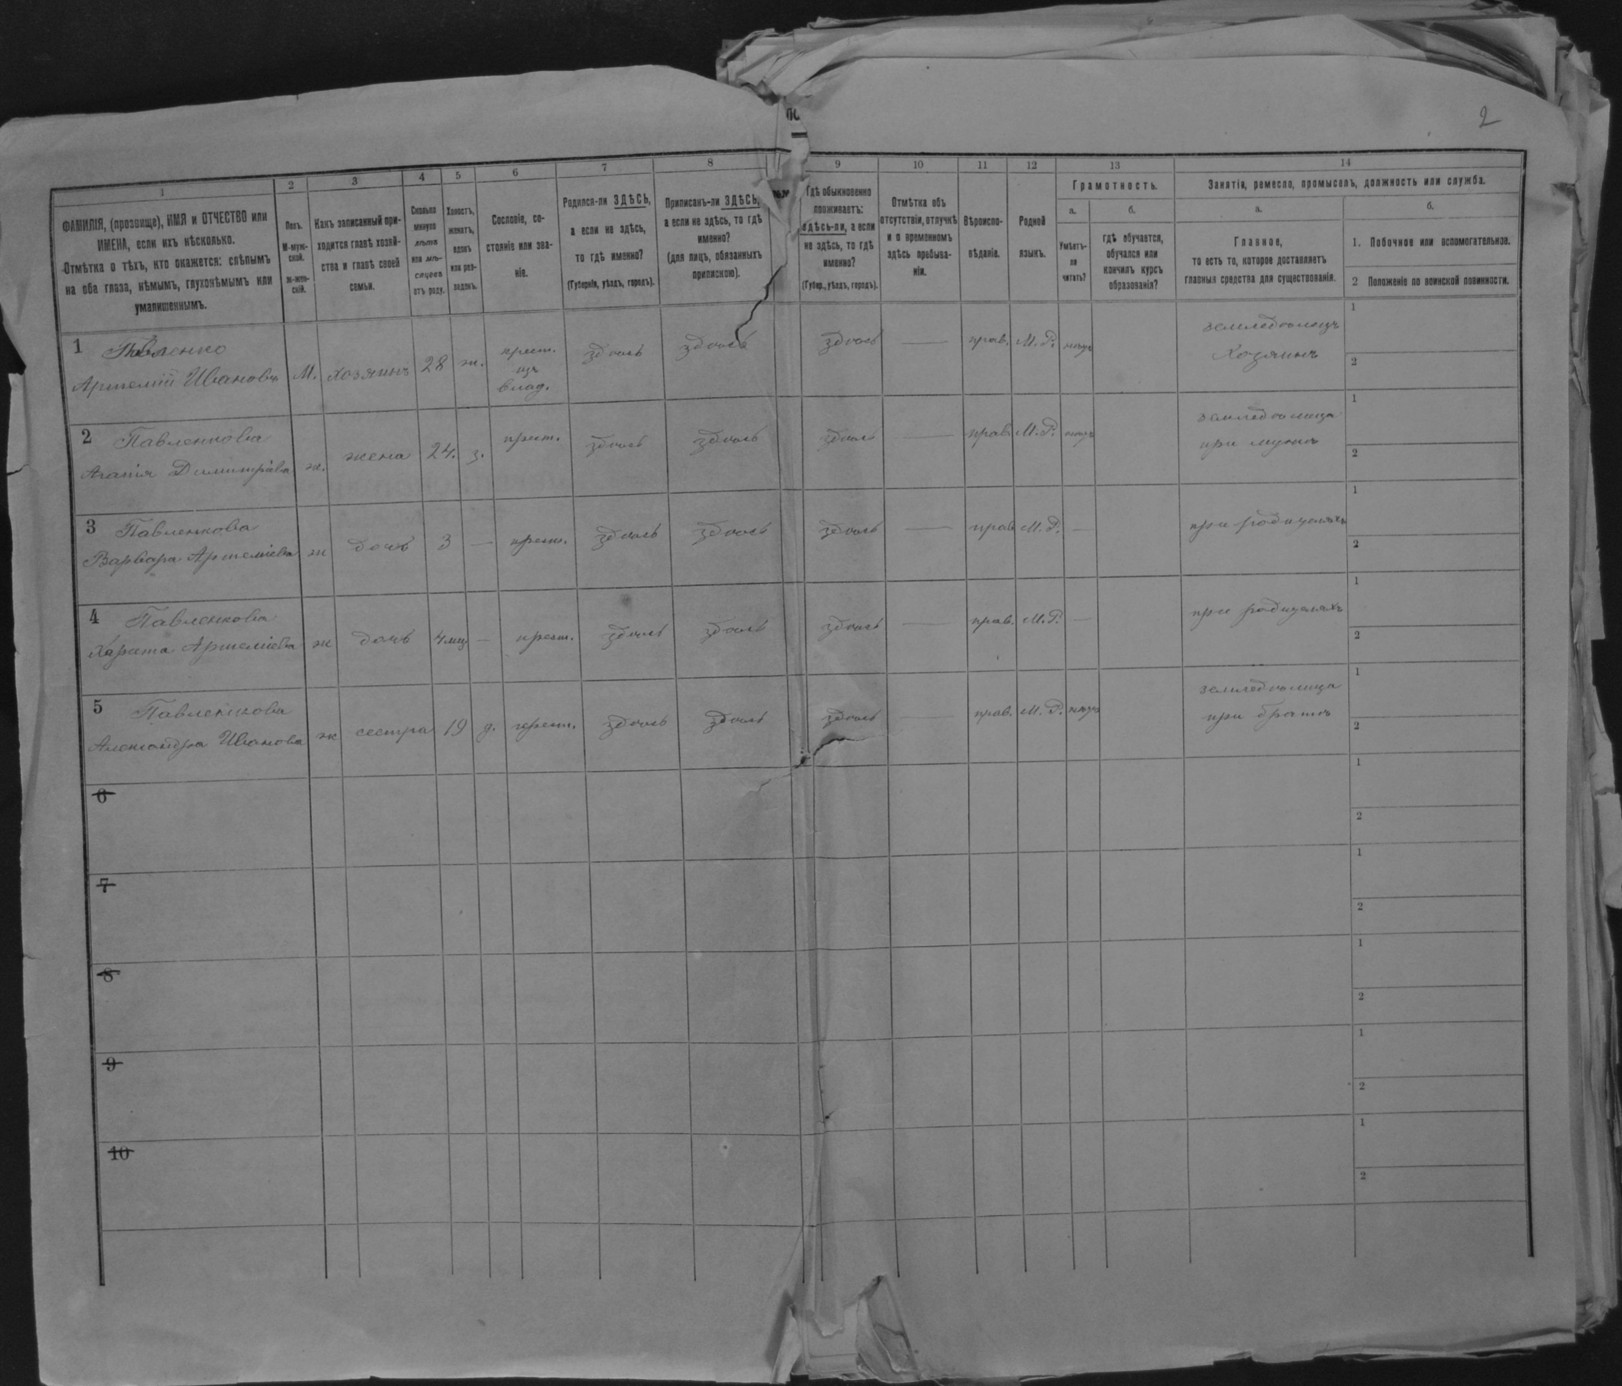 2
1 2 3 4 5 6 7 8 9 10 11 12 13 14
ФАМИЛІЯ, (прозвище), ИМЯ и ОТЧЕСТВО или
ИМЕНА, если ихъ нѣсколько.
Отмѣтка о тѣхъ, кто окажется: слѣпымъ
на оба глаза, нѣмымъ, глухонѣмымъ или
умалишеннымъ.
Полъ.
М-муж-
ской.
Ж-жен-
скій.
Какъ записанный при-
ходится главѣ хозяй-
ства и главѣ своей
семьи.
Сколько
минуло
лѣтъ
или мѣ-
сяцевъ
отъ роду.
Холостъ,
женатъ,
вдовъ
или раз-
веденъ.
Сословіе, со-
стояніе или зва-
ніе.
Родился-ли ЗДѢСЬ,
а если не здѣсь,
то гдѣ именно?
(Губернія, уѣздъ, городъ).
Приписанъ-ли ЗДѢСЬ,
а если не здѣсь, то гдѣ
именно?
(для лицъ, обязанныхъ
припискою).
Гдѣ обыкновенно
проживаетъ:
здѣсь-ли, а если
не здѣсь, то гдѣ
именно?
(Губер., уѣздъ, городъ).
Отмѣтка объ
отсутствіи, отлучкѣ
и о временномъ
здѣсь пребыва-
ніи.
Вѣроиспо-
вѣданіе.
Родной
языкъ.
Грамотность.
а.
Умѣетъ-
ли
читать?
б.
гдѣ обучается,
обучался или
кончилъ курсъ
образованія?
Занятіе, ремесло, промыселъ, должность или служба.
а.
Главное,
то есть то, которое доставляетъ
главныя средства для существованія.
б.
1. Побочное или вспомогательное.
2 Положеніе по воинской повинности.
1 Павленко
Артемій Ивановъ М. хозяинъ 28 ж. крест. изъ влад. здѣсь здѣсь здѣсь — прав. М.Р. нѣтъ земледѣлецъ
Хозяинъ
1
2
2 Павленкова
Агапія Димитріева ж. жена 24. з. крест. здѣсь здѣсь здѣсь — прав. М.Р. нѣтъ земледѣлица
при мужѣ
1
2
3 Павленкова
Варвара Артеміева ж дочь 3 — крест. здѣсь здѣсь здѣсь — прав М.Р. — при родителяхъ
1
2
4 Павленкова
Артеміева ж дочь 4 мц — крест. здѣсь здѣсь здѣсь — прав. М.Р. — при родителяхъ
1
2
5 Павленкова
Александра Иванова ж сестра 19 д. крест. здѣсь здѣсь здѣсь — прав. М.Р. нѣтъ земледѣлица
при братѣ
1
2
6
1
2
7
1
2
8
1
2
9
1
2
10
1
2